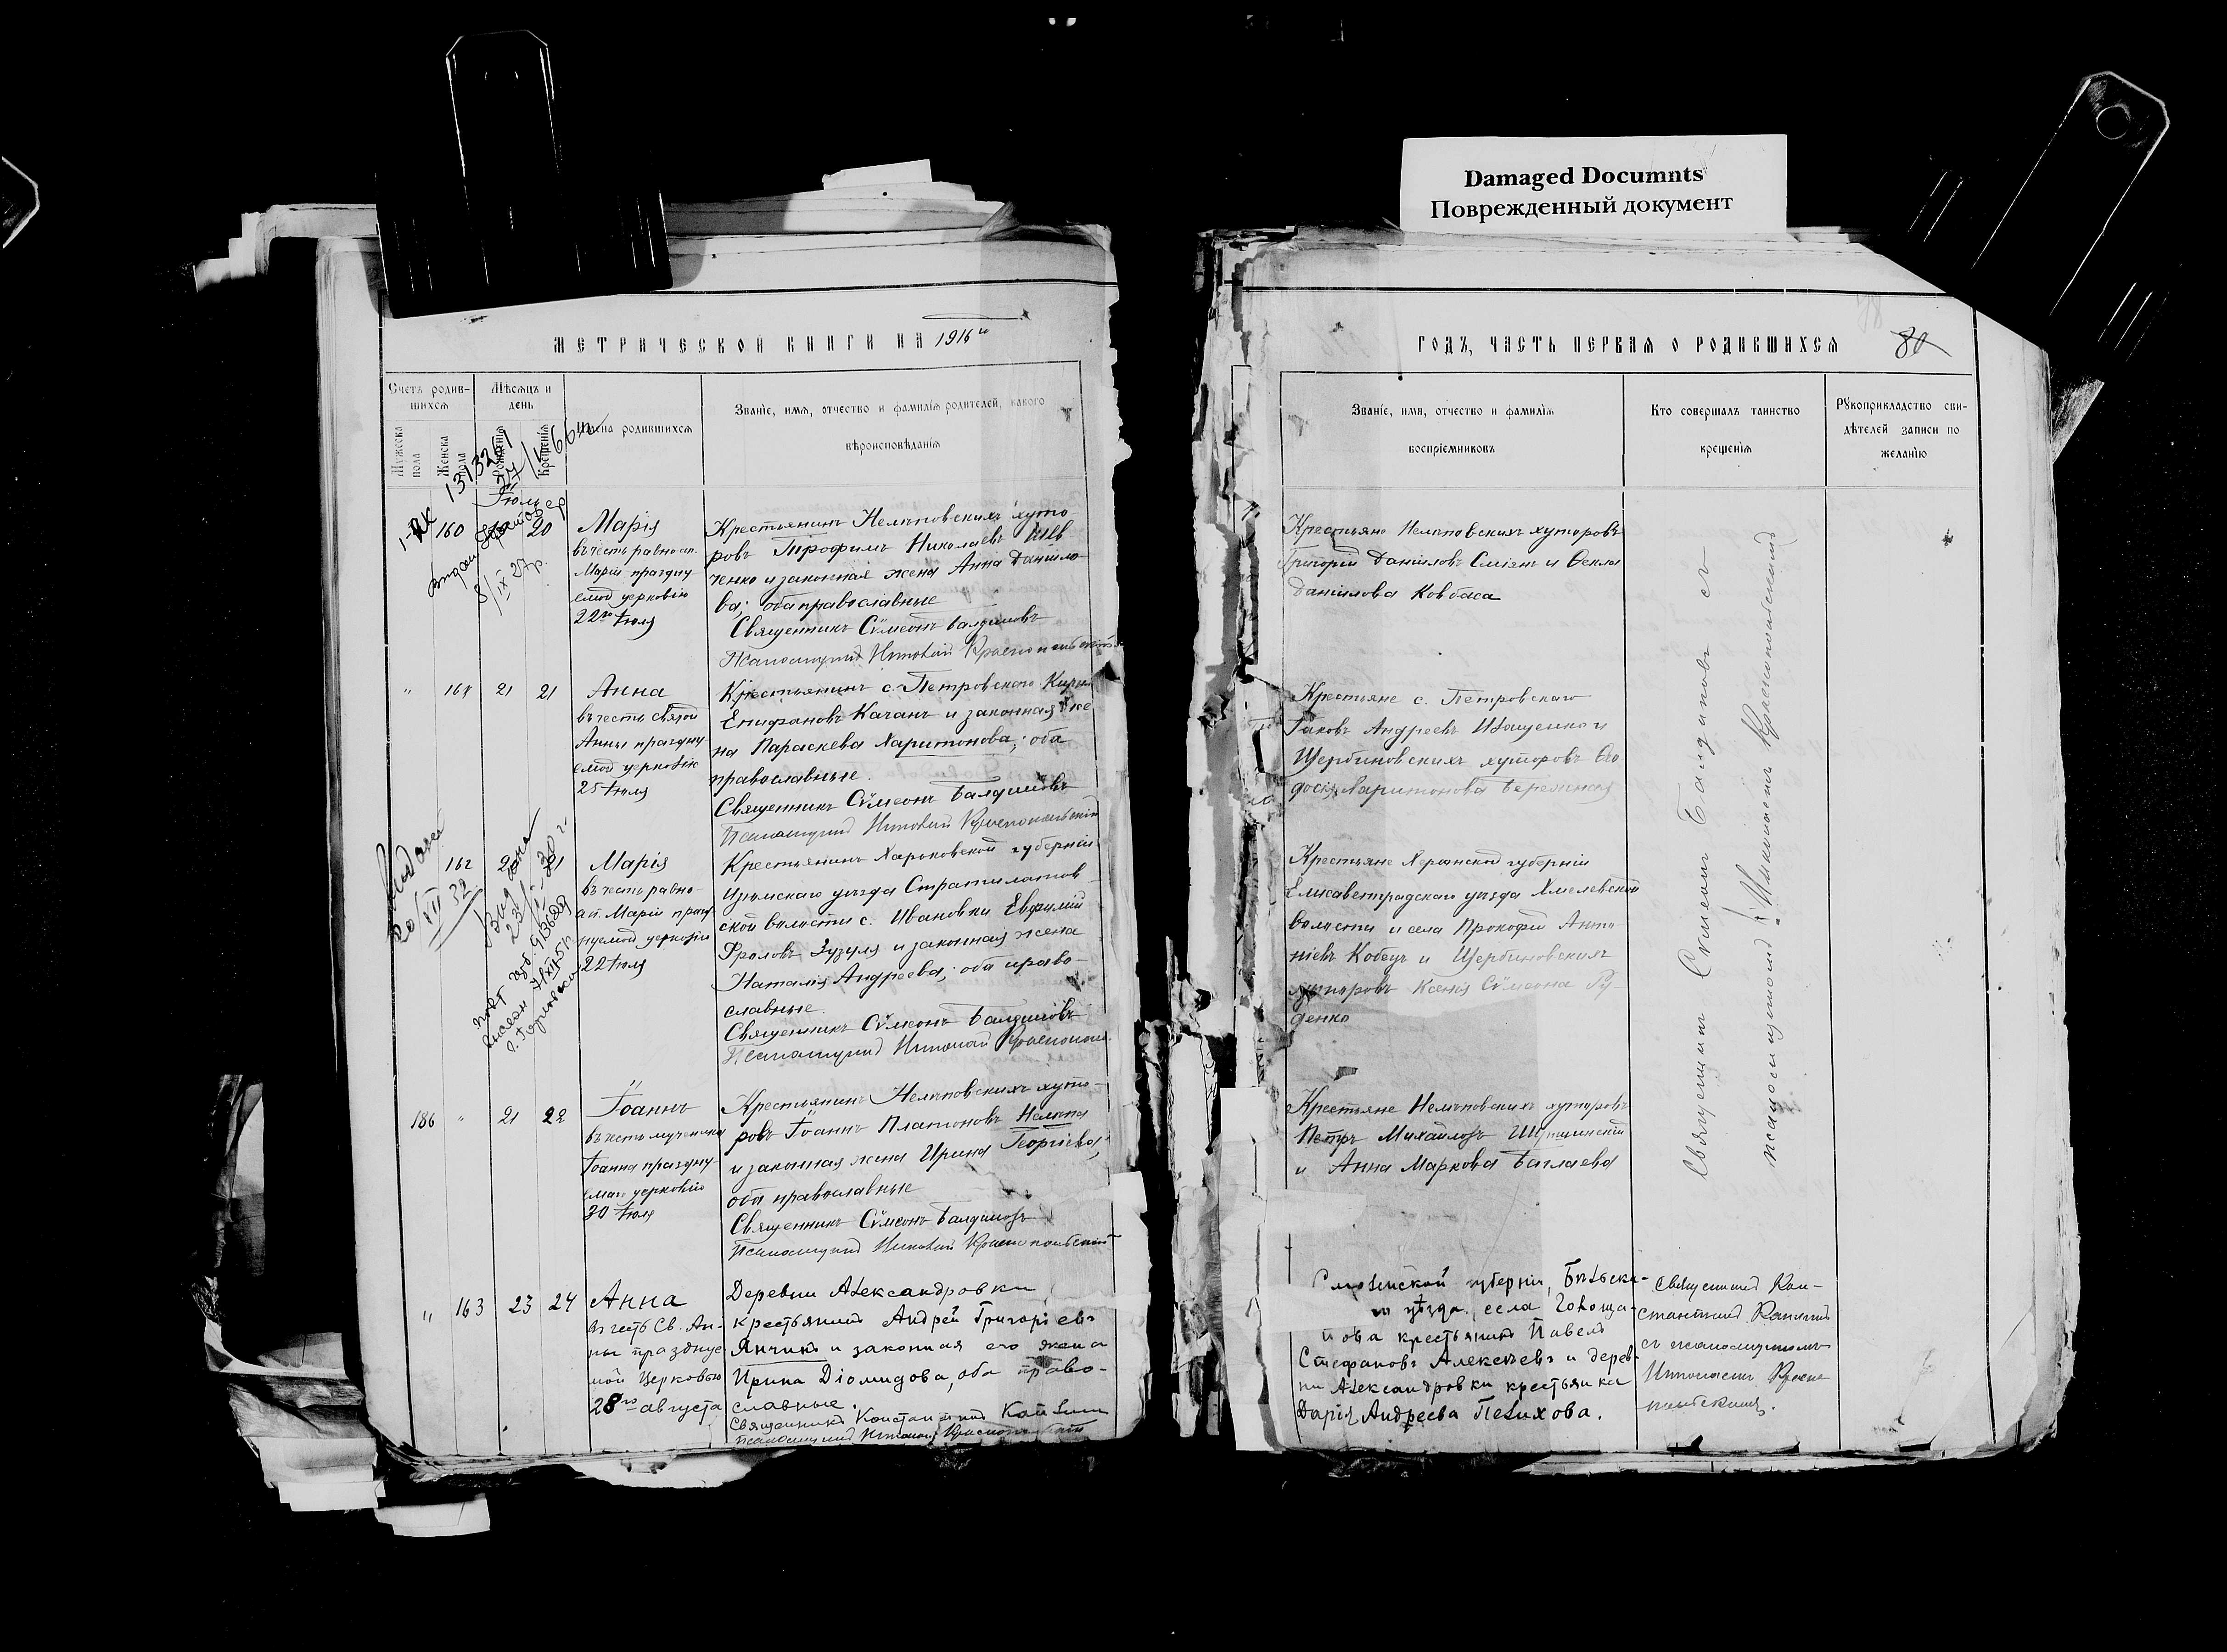 Damaged Documnts
Поврежденный документ
МЕТРИЧЕСКОЙ КНИГИ НА 1916
ГОДЪ, ЧАСТЬ ПЕРВАЯ О РОДИВШИХСЯ
80
Счетъ родив-
шихся
Мѣсяцъ и
день
Мужеска пола
Женска пола
Рожденія
Крещенія
Имена родившихся
Званіе, имя, отчество и фамилія родителей, какого
вѣроисповѣданія
Званіе, имя, отчество и фамилія
воспріемниковъ
Кто совершалъ таинство
крещенія
Рукоприкладство сви-
дѣтелей записи по
желанію
Іюль
160 20
Марія
въ честь равноап.
Маріи праздну-
емой церковію
22го Іюля
Крестьянинъ Нелѣповскихъ хуто-
ровъ Трофимъ Николаевъ Шев
ченко и законная жена Анна Данило-
ва; оба православные
Священникъ Сѵмеонъ Балдимовъ
Псаломщикъ Николай Краснопольскій
Крестьяне Нелѣповскихъ хуторовъ
Григорій Даніиловъ Сміянъ и Ѳекла
Даніилова Ковбаса
" 161 21 21
Анна
въ честь святой
Анны праздну
емой церковію
25 Іюля
Крестьянинъ с. Петровскаго
Епифановъ Качанъ и законная же
на Параскева Харитонова; оба
православные.
Священникъ Сѵмеонъ Балдимовъ
Псаломщикъ Николай Краснопольскій
Крестьяне с. Петровскаго
Іаковъ Андреевъ Иващенко и
Щербиновскихъ хуторовъ Ѳео
досія Харитонова Бережная
162 21
Марія
въ честь равно-
ап. Маріи празд
нуемой церковію
22 Іюля
Крестьянинъ Харьковской губерніи
Изюмскаго уѣзда Стратилатов
ской волости с. Ивановки Евфимій
Фроловъ Зузуля и законная жена
Наталія Андреева; оба право-
славные.
Священникъ Сѵмеонъ Балдимовъ
Псаломщикъ Николай
Крестьяне Херсонской губерніи
Елисаветградскаго уѣзда Хмелевской
волости и села Прокофій Анто
ніевъ Кобецъ и Щербиновскихъ
хуторовъ Ксенія Сѵмеона Ру-
денко
186 " 21 22
Іоаннъ
въ честь мученика
Іоанна праздну-
емаго церковію
30 Іюля
Крестьянинъ Нелѣповскихъ хуто-
ровъ Іоаннъ Платоновъ Нелѣпа
и законная жена Ирина Георгіева;
оба православные
Священникъ Сѵмеонъ Балдимовъ
Псаломщикъ Николай Краснопольскій
Крестьяне Нелѣповскихъ хуторовъ
Петръ Михайловъ
и Анна Маркова Баглаева
Священникъ Сѵмеонъ Балдимовъ съ
псаломщикомъ Николаемъ Краснопольскимъ
" 163 23 24
Анна
въ честь Св. Ан-
ны празднуе
мой Церковью
28го августа
Деревни Александровки
крестьянинъ Андрей Григоріевъ
Янчикъ и законная его жена
Ирина Діомидова, оба право-
славные.
Священникъ Константинъ
Псаломщикъ Николай Краснопольскій
Смоленской губерніи, Бѣльска-
го уѣзда, села
крестьянинъ Павелъ
Стефановъ Алексѣевъ и дерев-
ни Александровки крестьянка
Дарія Андреева Пелихова.
Священникъ Кон-
стантинъ
съ псаломщикомъ
Николаемъ Красно
польскимъ.